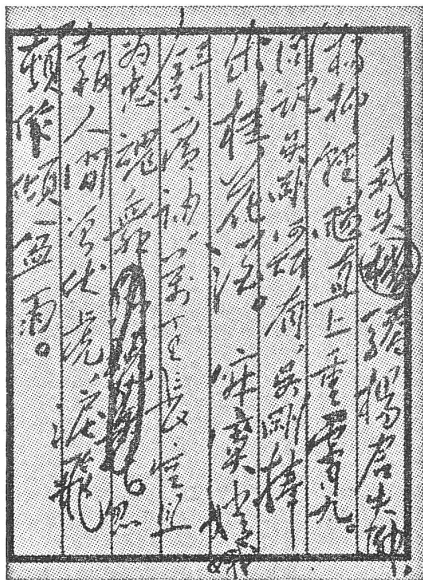 我失驕楊君失柳,
楊柳輕颺直上重霄九。
問訊吳剛何所有,吳剛捧
出桂花酒。寂寞嫦娥
舒廣袖,萬里長空且
為忠魂舞。忽
報人間曾伏虎,淚飛
頓作傾盆雨。